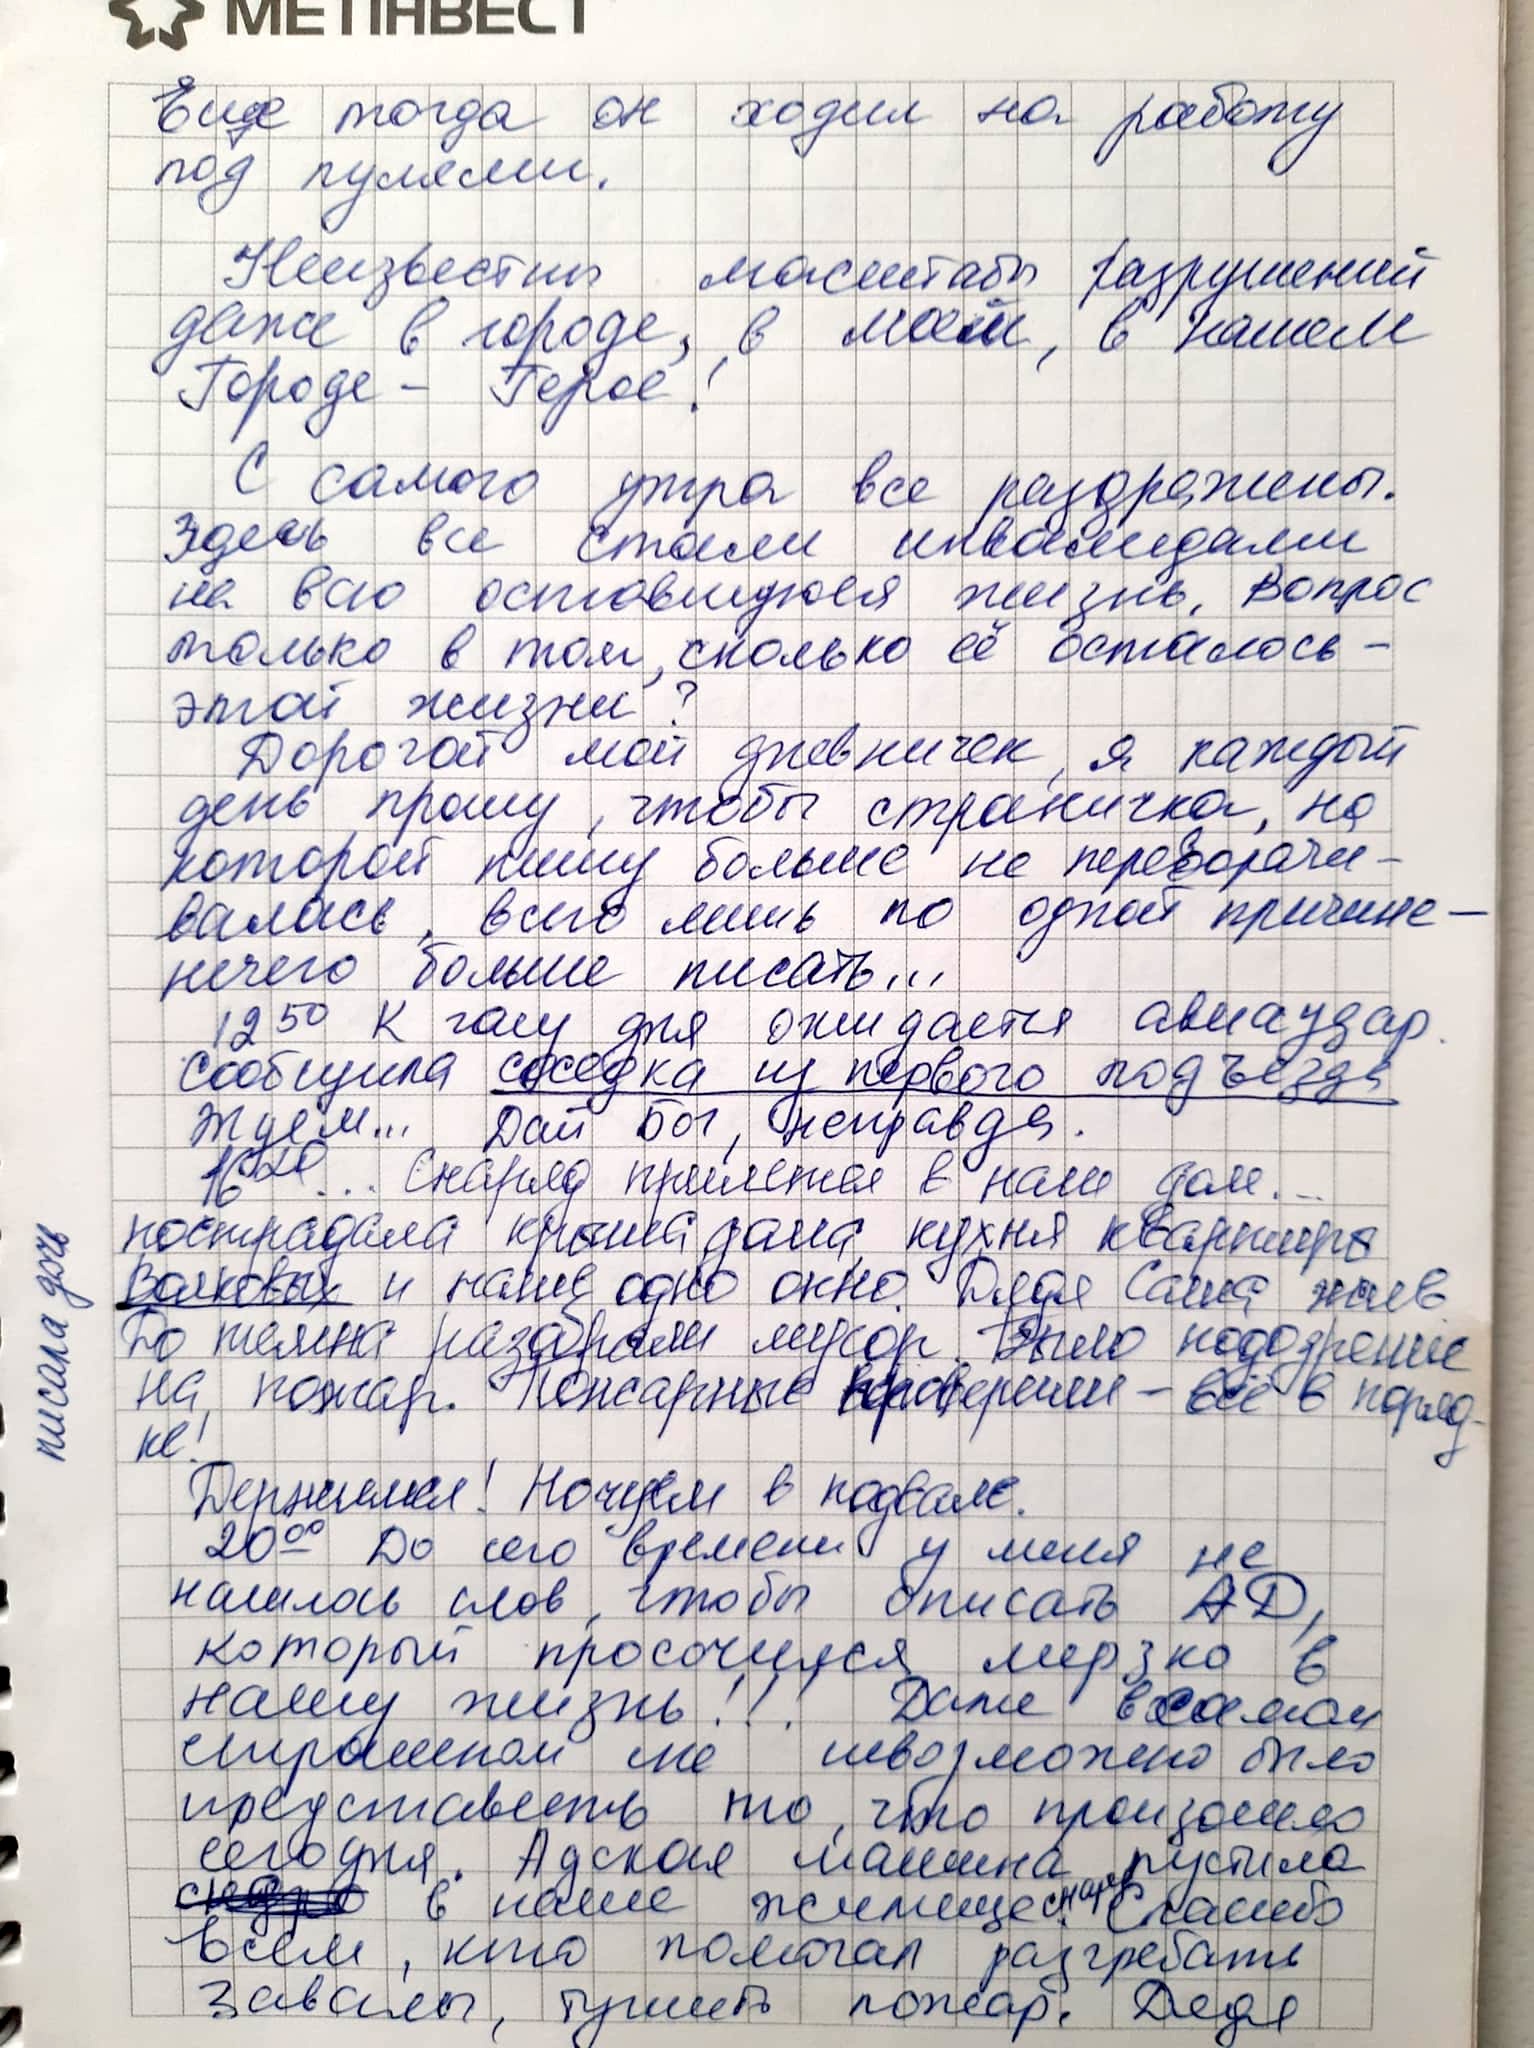 МЕТІНВЕСТ
Еще тогда он ходил на работу
под пулями.
Неизвестны масштабы разрушений
даже в городе, в моём, в нашем
Городе - Герое!
С самого утра все раздражены.
Здесь все стали инвалидами
на всю оставшуюся жизнь. Вопрос
только в том, сколько её осталось -
этой жизни?
Дорогой мой дневничек, я каждый
день прошу, чтобы страничка, на
которой пишу больше не переворачи-
валась, всего лишь по одной причине -
нечего больше писать...
12 50 К часу дня ожидается авиаудар.
Сообщила соседка из первого подъезда
Ждем... Дай Бог, неправда.
16 20 ... Снаряд прилетел в наш дом...
пострадала крыша дома, кухня квартиры
Волковых и наше одно окно. Дядя Саша жив
До темна разобрали мусор. Было подозрение
на пожар. Пожарные проверили - всё в поряд-
ке!
Держимся! Ночуем в подвале.
20 00 До сего времени у меня не
нашлось слов, чтобы описать АД,
который просочился мерзко в
нашу жизнь!!! Даже в самом
страшном сне невозможно было
представить то, что произошло
сегодня. Адская машина пустила
в наше жилище снаряд. Спасибо
всем, кто помогал разгребать
завалы, тушить пожар. Дядя
писала дочь